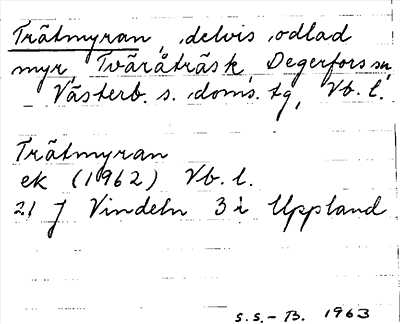 Trätmyran, delvis odlad
myr, Tväråträsk, Degerfors sn,
Västerb. s. doms. tg, Vb. l.
Trätmyran
ek (1962) Vb. l.
21 J Vindeln 3 i Uppland
S.S.-B. 1963